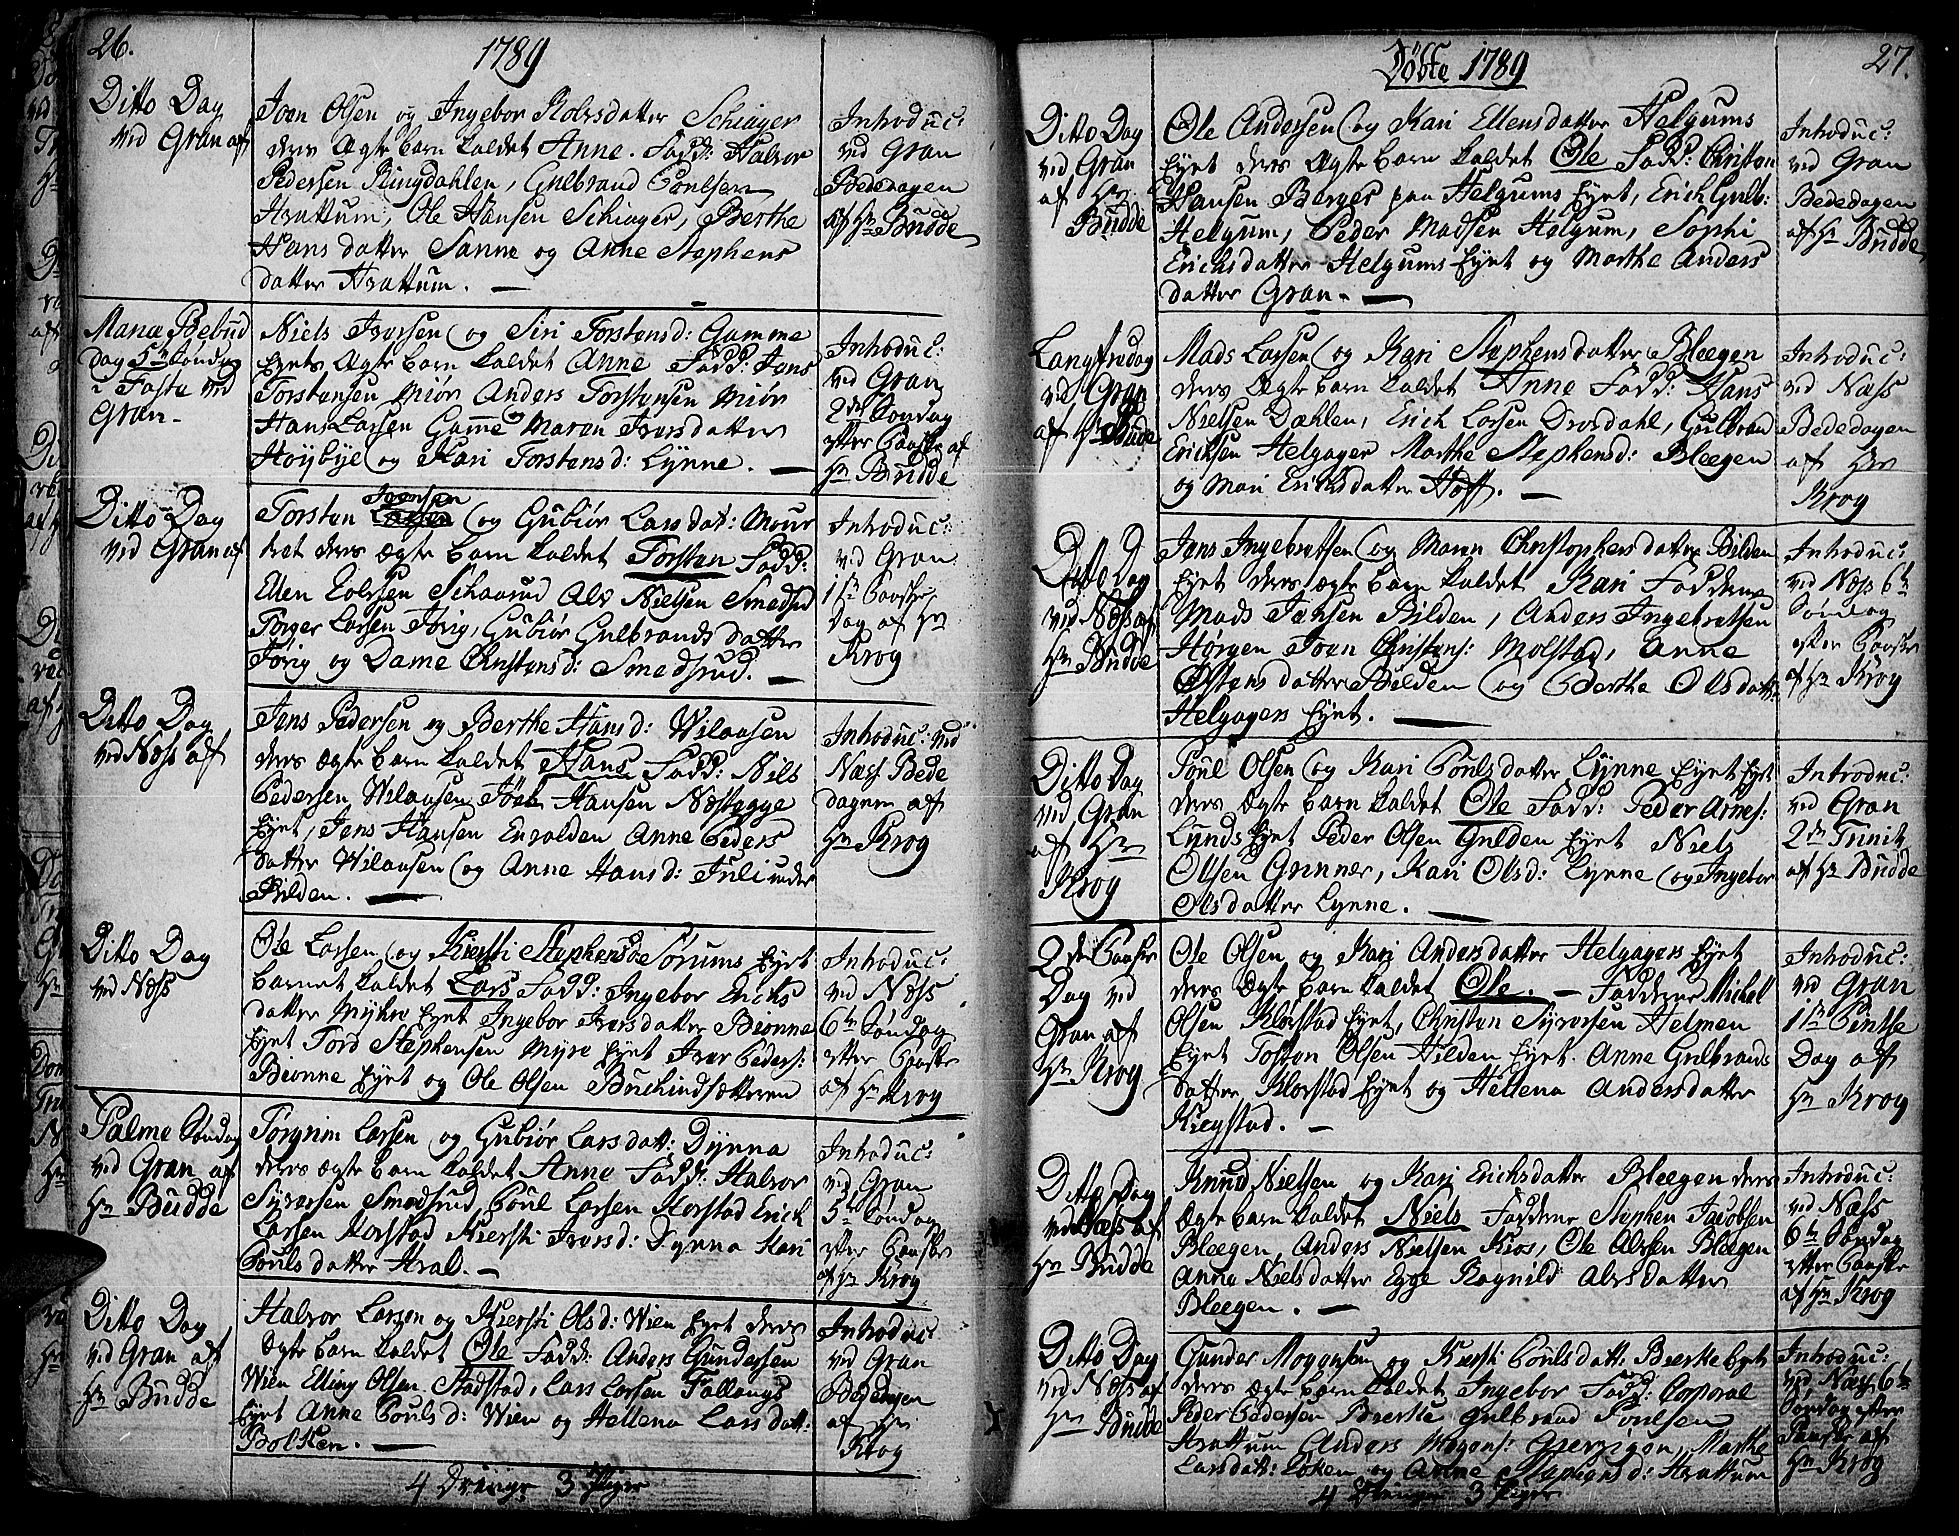 26.
1789
Ditto Dag
ved Gran af
Joen Olsen og Ingebor Rolvsdatter Schiager
deres Ægte barn kaldet Anne. Fadd: Halvor
Pedersen Ringdahlen, Gulbrand Poulsen
Hvattum, Ole Hansen Schiager, Berthe
Hans datter Sanne og Anne Stephens
datter Hvattum.
Introduc:
ved Gran
Bededagen
af Hr Budde
Mariæ Bebud
Dag 5te Søndag
i Faste ved
Gran.
Niels Iversen og Siri Torstensd: Gamme
Eyets Ægte barn kaldet Anne Fadd: Jens
Torstensen Miør Anders Torstensen Miør
Hans Larsen Gamme Maren Iversdatter
Høybye og Kari Torstensd: Lynne.
Introduc:
ved Gran
2den Søndag
efter Paaske af
Hr Budde
Ditto Dag
ved Gran af
Iversen
Torsten og Gubiør Larsdat: Mour
ket deres Ægte barn kaldet Torsten Fadd:
Ellen Schaarud Alv Nielsen Smedsrud
Torger Larsen Jorig, Gubiør Gulbrands datter
Jorig og Dame Christensd: Smedsrud.
Introduc:
ved Gran
1ste Paaske
Dag af Hr
Krog
Ditto Dag
ved Næss af
Jens Pedersen og Berthe Hansd: Wilausen
deres Ægte barn kaldet Hans Fadd: Niels
Pedersen Wilausen, Hansen Næsseggen
Eyet, Jens Hansen Envolden Anne Peders
datter Wilausen og Anne Hansd: Juli under
Bilden.
Introduc: ved
Næss Bede
dagen af
Hr Krog
Ditto Dag
ved Næss
Ole Larsen og Kiersti Stephensd: Sørums Eyet
barnet kaldet Lars Fadd: Ingebor Erichs
datter Myhre Eyet Ingebor Iversdatter Bionne
Eyet Tord Stephensen Myre Eyet Iver Peders:
Bionne Eyet og Ole Olsen Buchindsætteren
Introduc:
ved Næss
6te Søndag
efter Paaske
af Hr Krog
Palme Søndag
ved Gran af
Hr Budde
Torgrim Larsen og Gubiør Larsdatt: Dynna
deres Ægte barn kaldet Anne Fadd: Halvor
Syversen Smedsrud, Poul Larsen Horstad Erick
Larsen Horstad Kiersti Iversd: Dynna Kari
Pouls datter Hval.
Introduc:
ved Gran
5te Søndag
efter Paaske
af Hr Krog
Ditto Dag
ved Gran af
Hr Budde
Halvor Larsen og Kiersti Olsd: Wien Eyet deres
Ægte barn kaldet Ole Fadd: Anders Gundersen
Wien Elling Olsen Stadstad, Lars Larsen Fallangs
Eyet Anne Poulsd: Wien og Hellena Lars datt:
Bolken.
Introduc:
ved Gran
Bededagen
af Hr
Krog
4 Drenge 3 Piger
Døbte 1789
27.
Ditto Dag
ved Gran
af Hr
Budde
Ole Andersen og Kari Ellensdatter Helgums
Eyet deres Ægte barn kaldet Ole Fadd: Christen
Hansen Berger paa Helgums Eyet, Erich Gulb:
Helgum, Peder Madsen Helgum, Sophi
Erichsdatter Helgums Eyet og Marthe Anders
datter Gran.
Introduc:
ved Gran
Bededagen
af Hr Budde
Langfredag
ved Gran
af Hr Budde
Mads Larsen og Kari Stephensdatter Bleegen
deres Ægte barn kaldet Anne Fadd: Hans
Nielsen Dæhlen, Erich Larsen Drovdahl, Gulbran
Ericksen Helgager Marthe Stephensd: Bleegen
og Mari Erichsdatter Hoff.
Introduc:
ved Næss
Bededagen
af Hr
Krog
Ditto Dag
ved Næss af
Hr Budde
Jens Ingebretsen og Maren Christophersdatter Bilden
Eyet deres Ægte barn kaldet Kari Fadderne
Mads Jensen Bilden, Anders Ingebretsen
Horgen Joen Christens: Molstad, Anne
Østens datter Bilden og Berthe Olsdatt:
Helgagers Eyet.
Introduc:
ved Næss 6te
Søndag
efter Paaske
af Hr Krog
Ditto Dag
ved Gran
af Hr
Krog
Poul Olsen og Kari Poulsdatter Lynne Eyet
deres Ægte barn kaldet Ole Fadd: Peder Arnes:
Lunds Eyet Peder Olsen Gulden Eyet Niels
Olsen Grinner, Kari Olsd: Lynne og Ingebor
Olsdatter Lynne.
Introduc:
ved Gran
2den Trinit
af Hr Budde
2den Paaske
Dag ved
Gran af
Hr Krog
Ole Olsen og Kari Andersdatter Helgagers Eyet
deres Ægte barn kaldet Ole. Fadderne Michell
Olsen Klorstad Eyet, Christen Syversen Helmen
Eyet Tosten Olsen Hilden Eyet. Anne Gulbrands
datter, Klorstad Eyet og Hellena Andersdatter
Kiegstad.
Introduc:
ved Gran
1ste Pintse
Dag af
Hr Krog
Ditto Dag
ved Næss af
Hr Budde
Knud Nielsen og Kari Erichsdatter Bleegen deres
Ægte barn kaldet Niels Fadderne Stephen Jacobsen
Bleegen, Anders Nielsen Kios, Ole Alvsen Bleegen
Anne Nielsdatter Egge Ragnild Alvsdatter
Bleegen.
Introduc:
ved Næss
6te Søndag
efter Paaske
af Hr Krog
Ditto Dag
ved Næss af
Hr Budde
Gunder Mogensen og Kiersti Poulsdatt: Bierke Eyet
deres Ægte barn kaldet Ingebor Fadd: Corporal
Peder Pedersen Bierke Gulbrand Poulsen
Hvattum Anders Mogens: Marthe
Larsdatt: Løken og Anne Stephensd: Hvattum
Introduc:
ved Næss 6te
Søndag efter
Paaske af
Hr Krog
4 Drenge 3 Piger